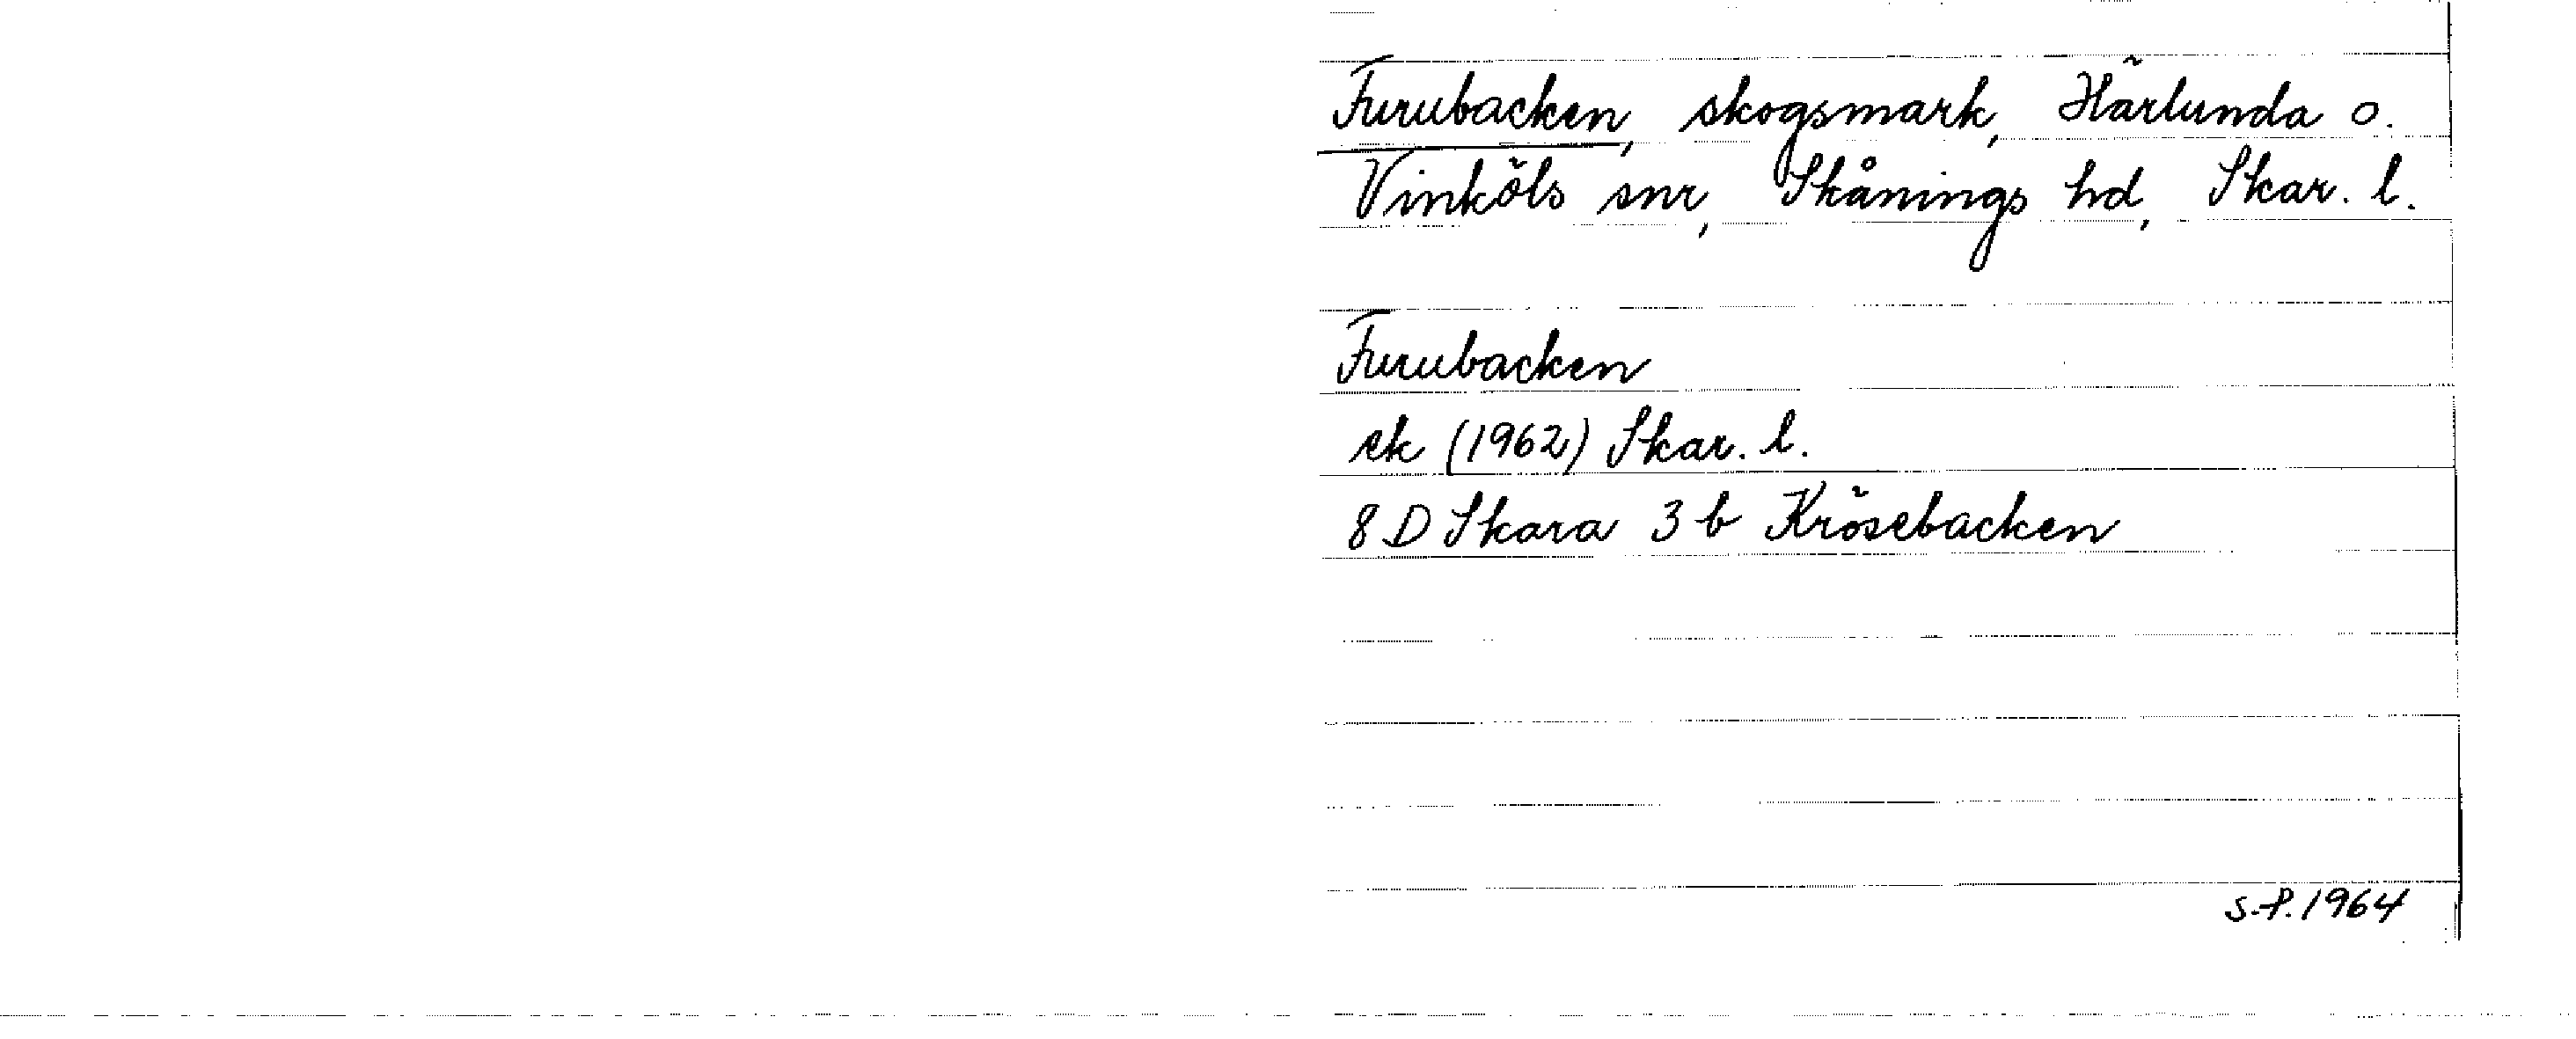 Furubacken, skogsmark, Härlunda o.
Vinköls snr, Skånings hd, Skar. l.
Furubacken
ek (1962) Skar. l.
8 D Skara 3 b Krösebacken
S.P. 1964